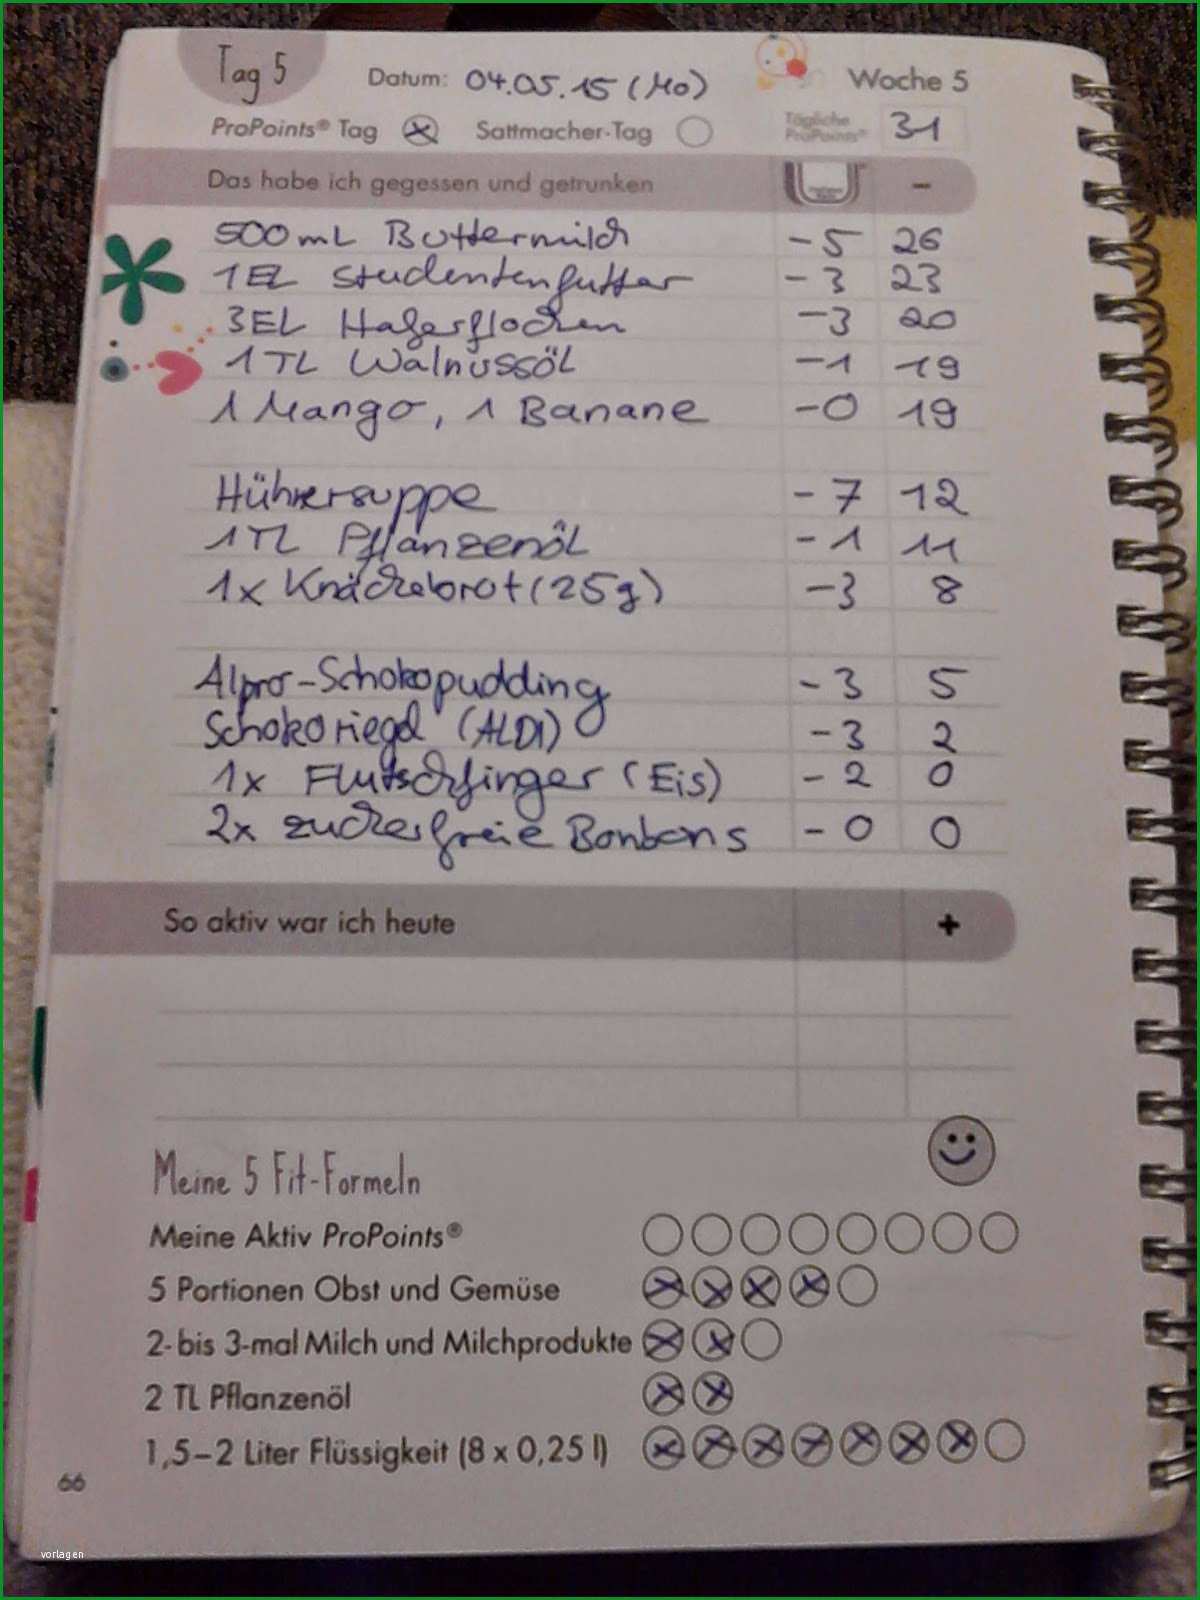 Tag 5 Datum: 04.05.15 (Mo) Woche 5
ProPoints® Tag Sattmacher-Tag Tägliche ProPoints® 31
Das habe ich gegessen und getrunken -
500mL Buttermilch -5 26
1EL Studentenfutter -3 23
3EL Haferflocken -3 20
1TL Walnussöl -1 19
1 Mango, 1 Banane -0 19
Hühnersuppe -7 12
1TL Pflanzenöl -1 11
1x Knäckebrot (25g) -3 8
Alpro-Schokopudding -3 5
Schokoriegel (ALDI) -3 2
1x Flutschfinger (Eis) -2 0
2x zuckerfreie Bonbons -0 0
So aktiv war ich heute +
Meine 5 Fit-Formeln
Meine Aktiv ProPoints®
5 Portionen Obst und Gemüse
2- bis 3-mal Milch und Milchprodukte
2 TL Pflanzenöl
1,5–2 Liter Flüssigkeit (8 x 0,25 l)
66
vorlagen